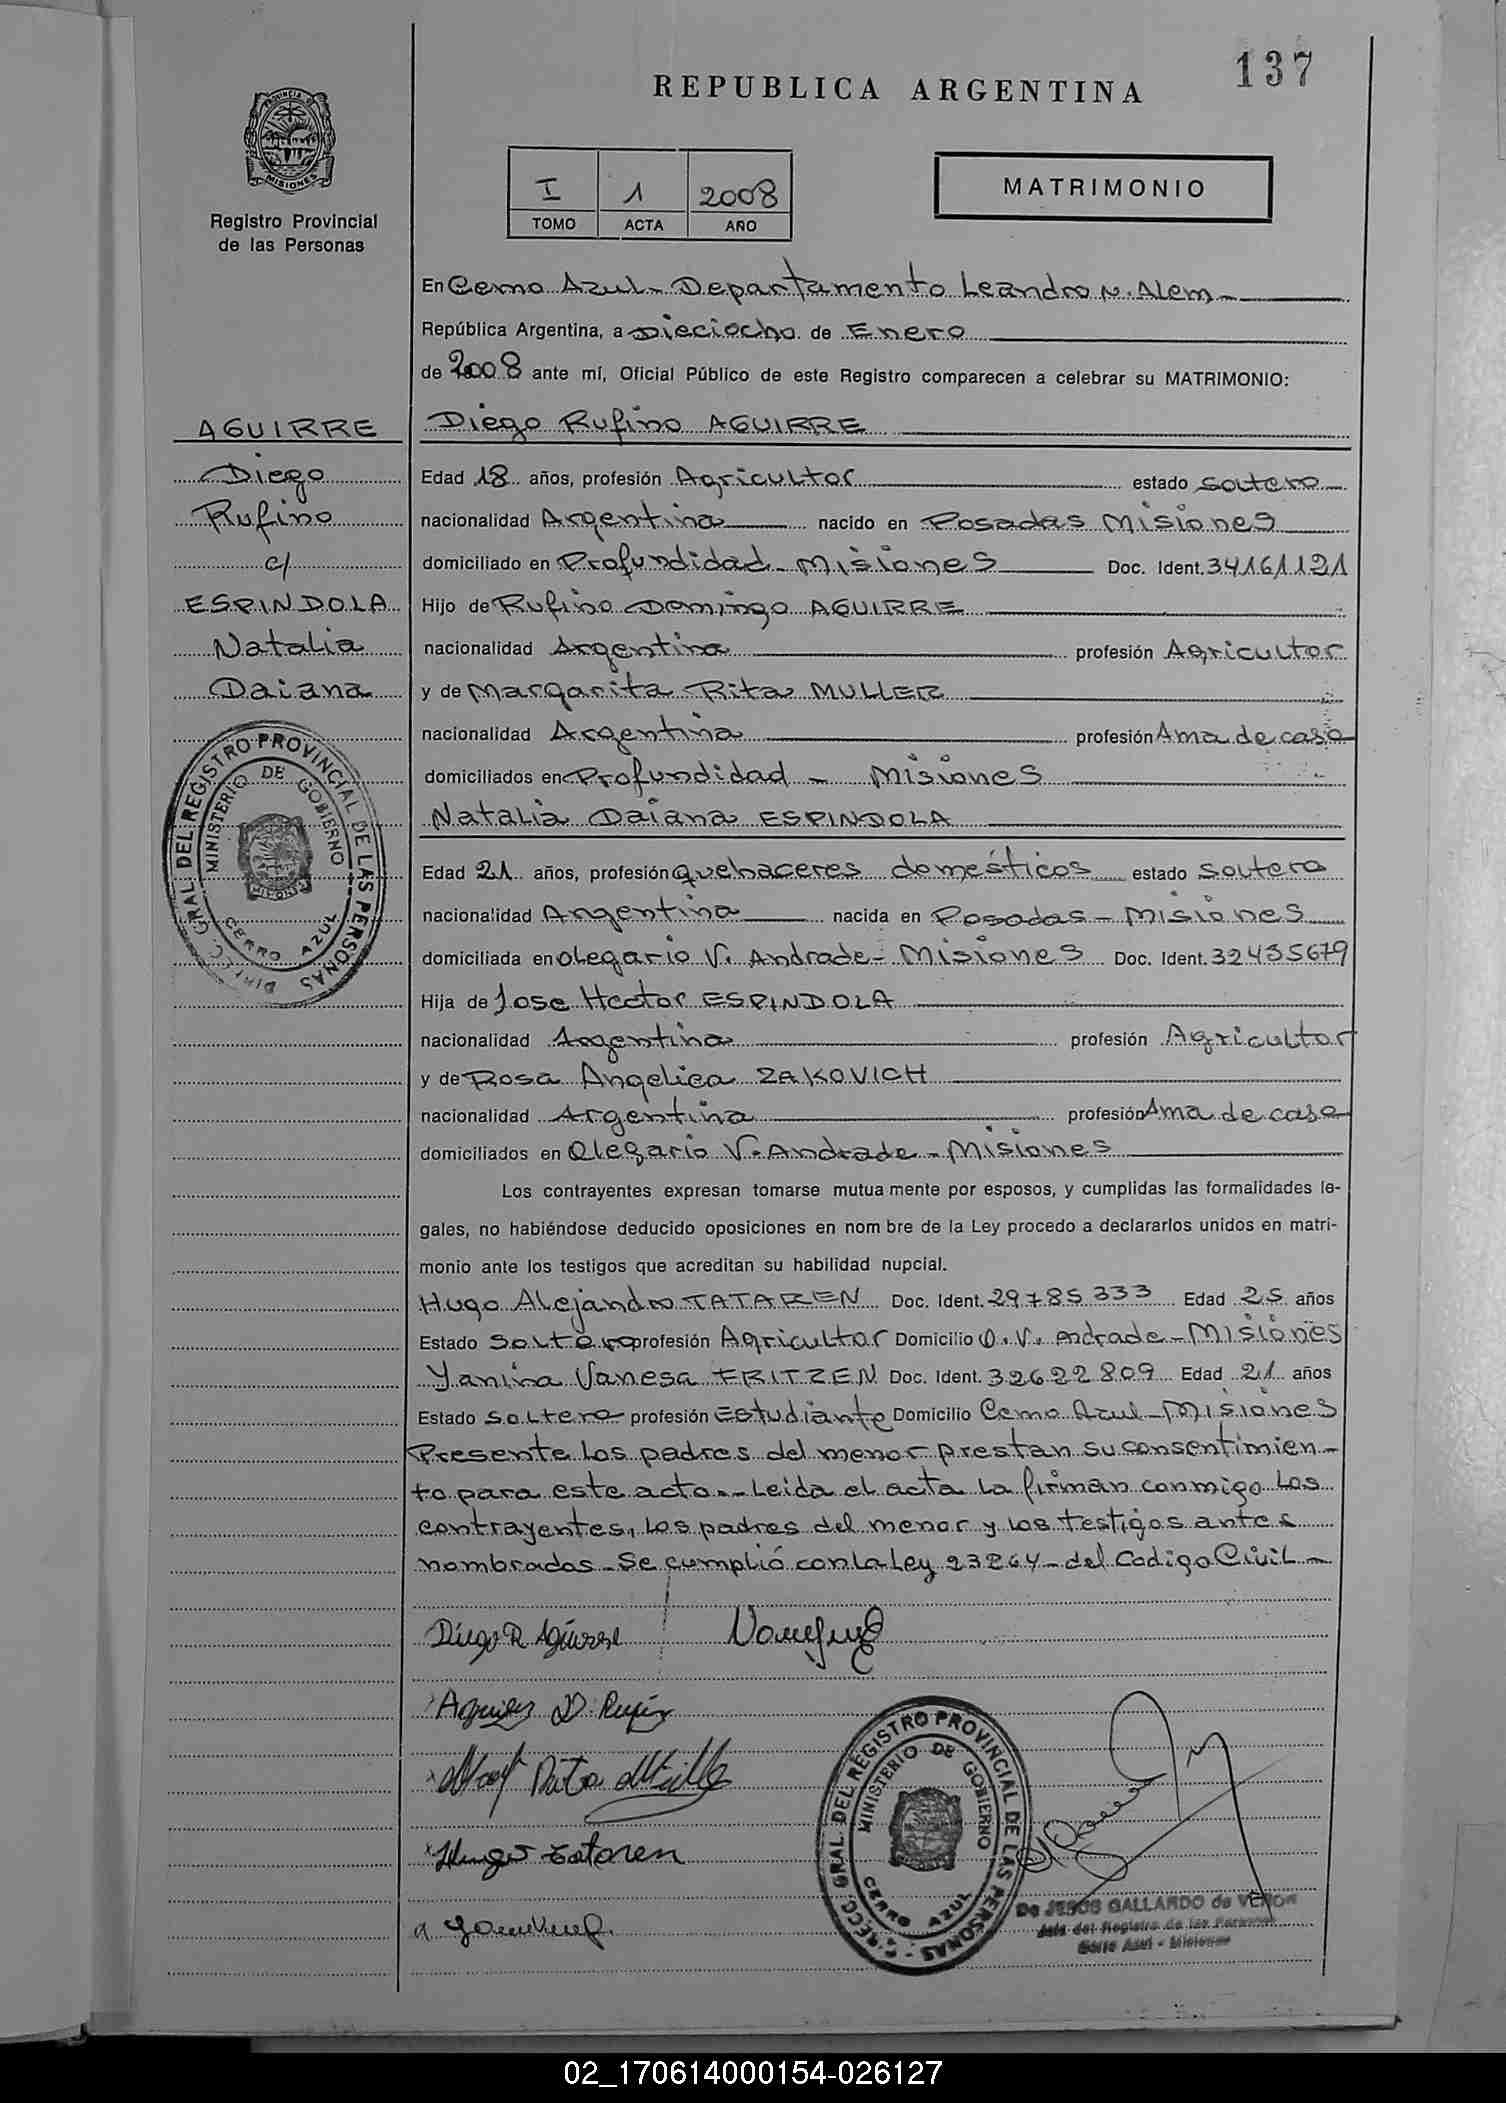 137
REPUBLICA ARGENTINA
PROVINCIA DE
MISIONES
Registro Provincial
de las Personas
I 1 2008
TOMO ACTA AÑO
MATRIMONIO
En Cerro Azul - Departamento Leandro N. Alem -
República Argentina, a Dieciocho de Enero
de 2008 ante mí, Oficial Público de este Registro comparecen a celebrar su MATRIMONIO:
AGUIRRE
Diego
Rufino
c/
ESPINDOLA
Natalia
Daiana
DIRECC. GRAL. DEL REGISTRO PROVINCIAL DE LAS PERSONAS
MINISTERIO DE GOBIERNO
CERRO AZUL
Diego Rufino AGUIRRE
Edad 18 años, profesión Agricultor estado soltero
nacionalidad Argentina nacido en Posadas Misiones
domiciliado en Profundidad - Misiones Doc. Ident. 34161121
Hijo de Rufino Domingo AGUIRRE
nacionalidad Argentina profesión Agricultor
y de Margarita Rita MULLER
nacionalidad Argentina profesión Ama de casa
domiciliados en Profundidad - Misiones
Natalia Daiana ESPINDOLA
Edad 21 años, profesión quehaceres domésticos estado soltera
nacionalidad Argentina nacida en Posadas - Misiones
domiciliada en Olegario V. Andrade - Misiones Doc. Ident. 32435679
Hija de Jose Hector ESPINDOLA
nacionalidad Argentina profesión Agricultor
y de Rosa Angelica ZAKOVICH
nacionalidad Argentina profesión Ama de casa
domiciliados en Olegario V. Andrade - Misiones
Los contrayentes expresan tomarse mutua mente por esposos, y cumplidas las formalidades le-
gales, no habiéndose deducido oposiciones en nom bre de la Ley procedo a declararlos unidos en matri-
monio ante los testigos que acreditan su habilidad nupcial.
Hugo Alejandro TATAREN Doc. Ident. 29785333 Edad 25 años
Estado Soltero profesión Agricultor Domicilio O. V. Andrade - Misiones
Yanina Vanesa FRITZEN Doc. Ident. 32622809 Edad 21 años
Estado soltera profesión Estudiante Domicilio Cerro Azul - Misiones
Presente los padres del menor prestan su consentimien-
to para este acto.- Leida el acta la firman conmigo los
contrayentes, los padres del menor y los testigos antes
nombrados - Se cumplió con la Ley 23264 - del Codigo Civil -
Diego R Aguirre
Rita
Hugo Tataren
DIRECC. GRAL. DEL REGISTRO PROVINCIAL DE LAS PERSONAS
MINISTERIO DE GOBIERNO
CERRO AZUL
De JESUS GALLARDO de VERON
Jefa del Registro de las Personas
Cerro Azul - Misiones
02_170614000154-026127